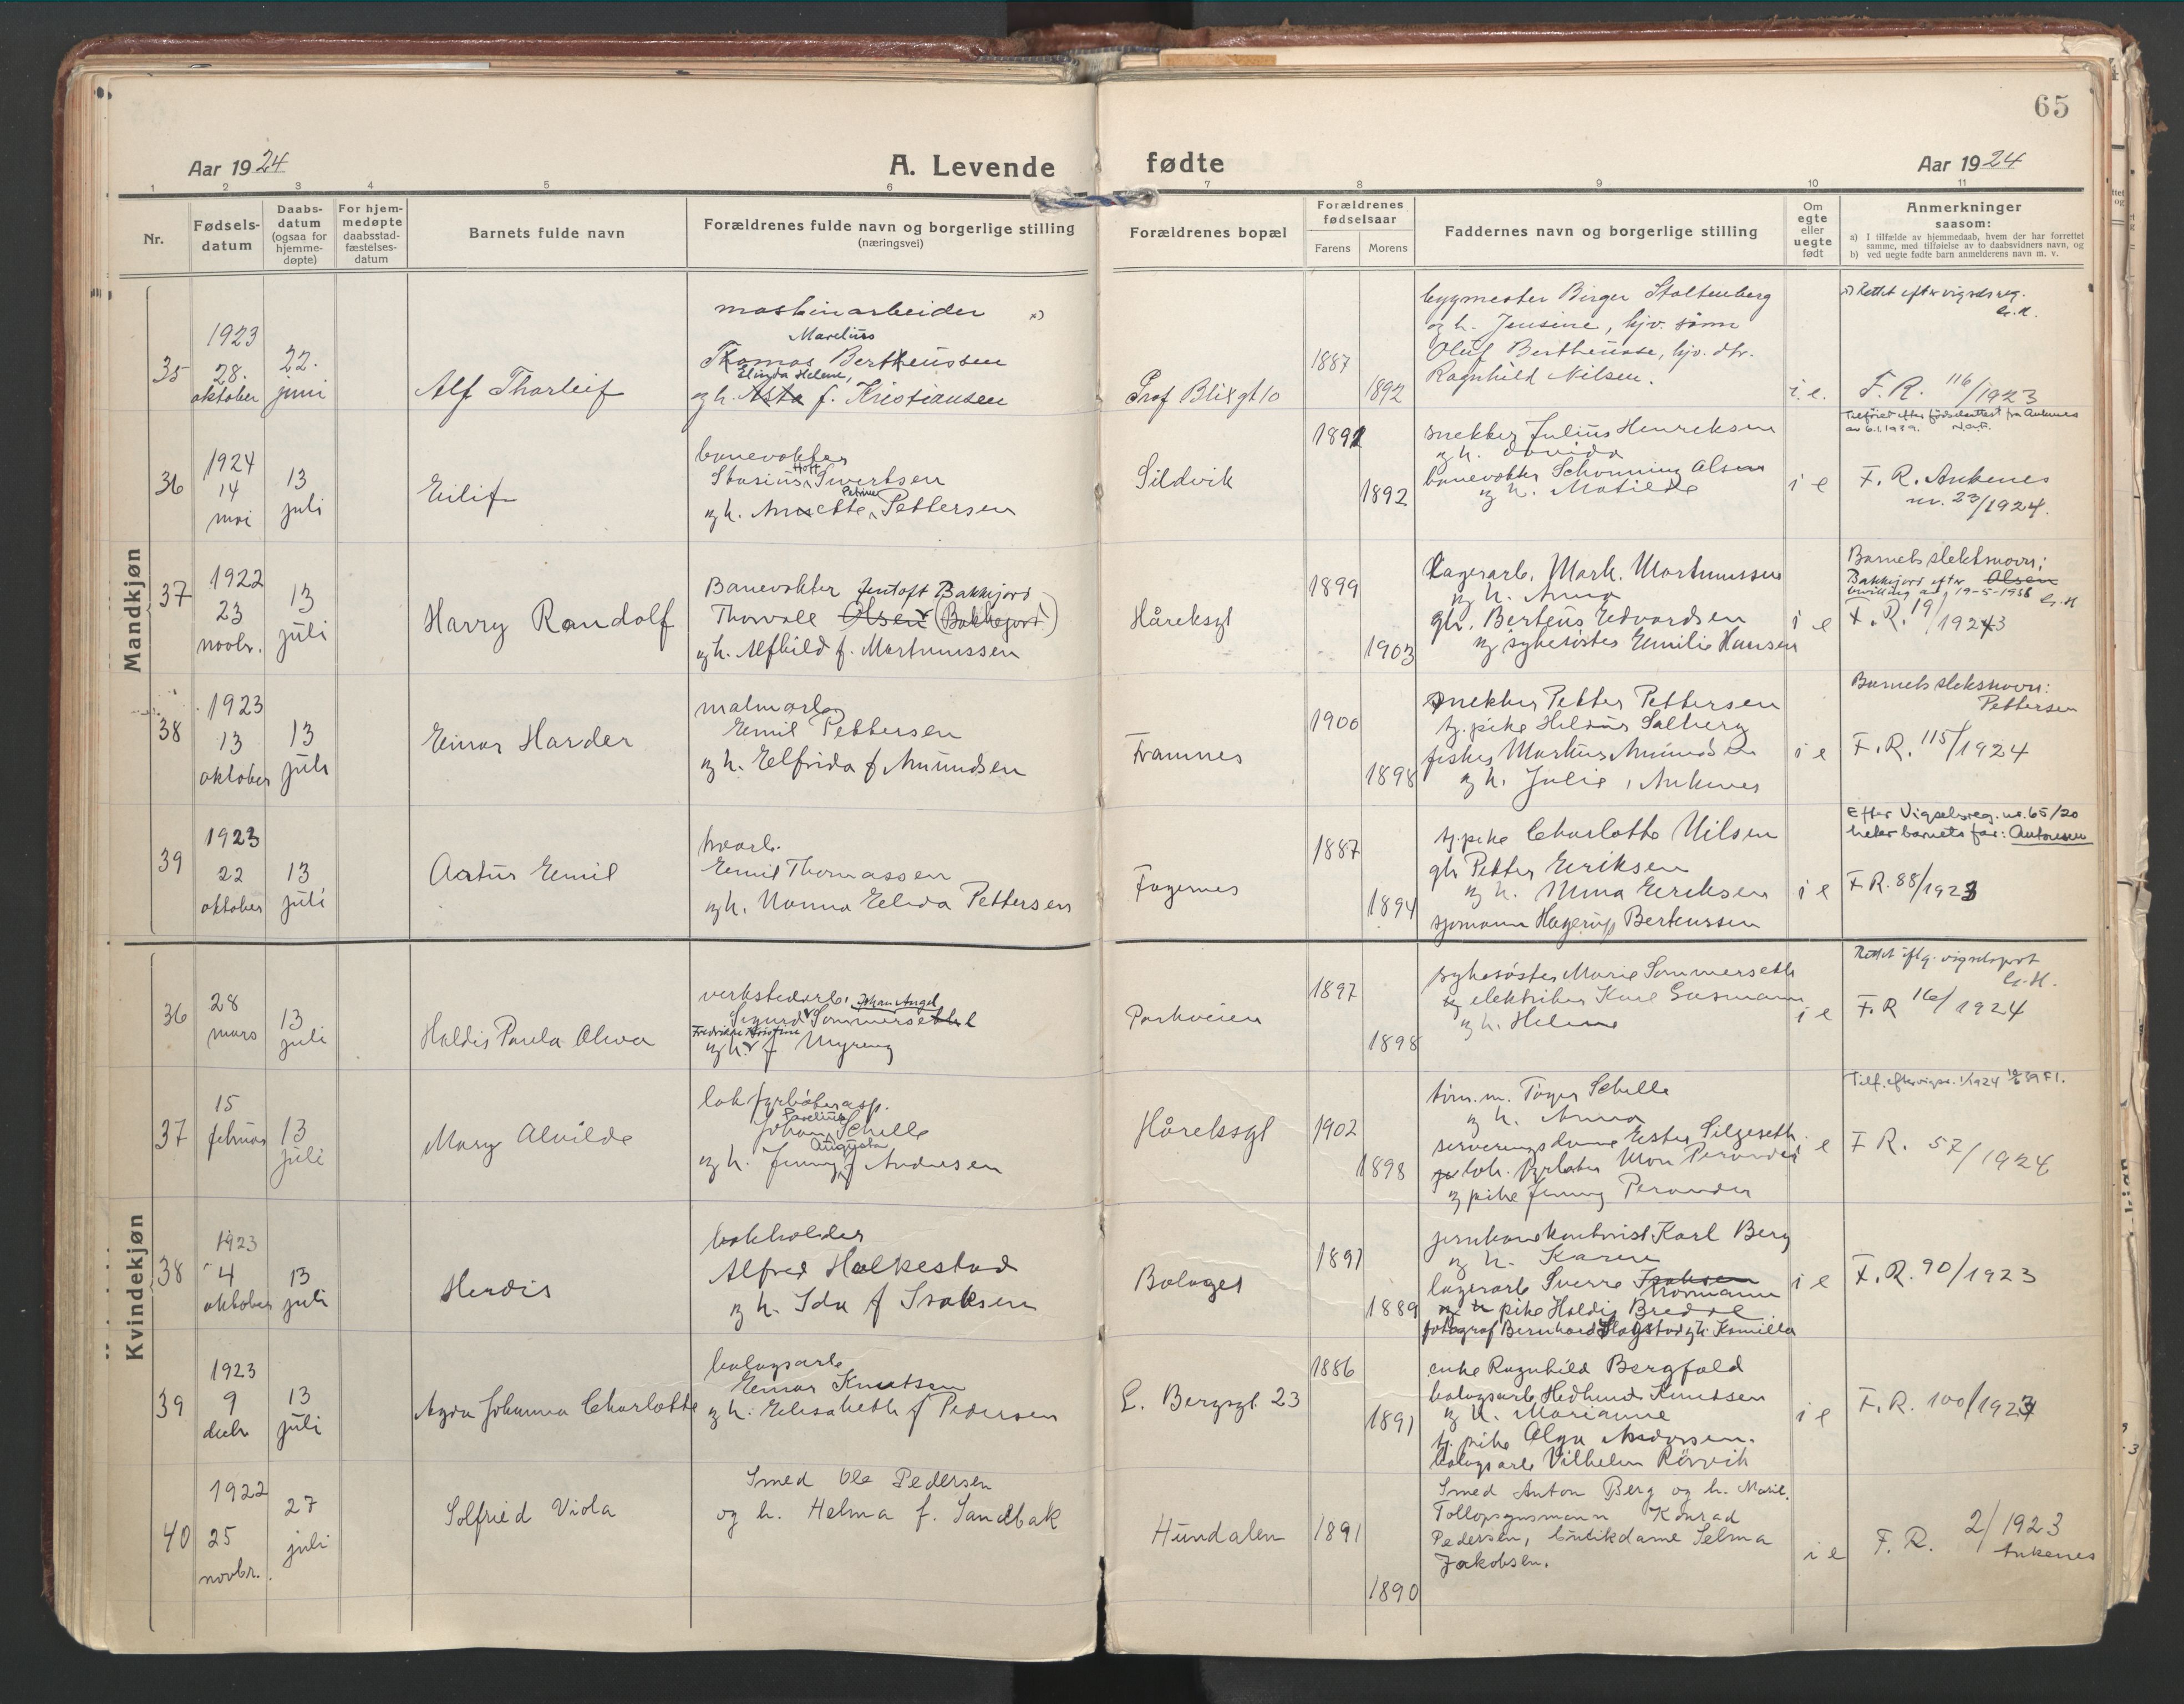 65
Aar 1924
A. Levende fødte
Aar 1924
1 2 3 4 5 6 7 8 9 10 11
Nr.
Fødsels-
datum
Daabs-
datum
(ogsaa for
hjemme-
døpte)
For hjem-
medøpte
daabsstad-
fæstelses-
datum
Barnets fulde navn
Forældrenes fulde navn og borgerlige stilling
(næringsvei)
Forældrenes bopæl
Forældrenes
fødselsaar
Farens
Morens
Faddernes navn og borgerlige stilling
Om
egte
eller
uegte
født
Anmerkninger
saasom:
a) I tilfælde av hjemmedaab, hvem der har forrettet
samme, med tilføielse av to daabsvidners navn, og
b) ved uegte fødte barn anmelderens navn m. v.
Mandkjøn
35
1923
28.
oktober
22.
juni
Alf Thorleif
maskinarbeider x)
Marelius
Thomas Bertheussen
Elinda Helene,
og h. Asta f. Kristiansen
Prof Blixgt 10
1887
1892
bygmester Birger Stoltenberg
og h. Jensine, hjv. sønn
Oluf Bertheusse, hjv. dtr.
Ragnhild Nilsen.
i. e.
x) Rettet efter vigselsreg.
F. R. 116/1923
36
1924
14
mai
13
juli
Eilif
banevokter
Hoff
Stasius Sivertsen
Petrine
og h. Annette Pettersen
Sildvik
1891
1892
snekker Julius Henriksen
og h. Davida
banevokter Schonning Olsen
og h. Matilde
i e
Tilføiet efter fødselsattest fra Ankenes
av 6.1.1939.
F. R. Ankenes
nr. 23/1924.
37
1922
23
novbr.
13
juli
Harry Randolf
Banevokter Jentoft Bakkejord
Thorvald Olsen (Bakkejord)
og h. Alfhild f. Martinussen
Håreksgt
1899
1903
Lagerarb. Mark. Martinussen
og h. Anna
gb. Berteus Edvardsen
og sykesøster Emilie Hansen
i e
Barnets slektsnavn:
Bakkejord efter Olsen
bevilling av 19-5-1936
F. R. 19/1923
38
1923
13
oktober
13
juli
Einar Harder
malmarb
Emil Pettersen
og h. Elfrida f Amundsen
Framnes
1900
1898
snekker Petter Pettersen
tj. pike Heldine Salberg
fisker Markus Amundsen
og h. Julie, Ankenes
i e
Barnets slektsnavn:
Pettersen
F. R. 115/1924
39
1923
22
oktober
13
juli
Artur Emil
hvarb.
Emil Thomassen
og h. Nanna Elida Pettersen
Fagernes
1887
1894
tj. pike Charlotte Nilsen
gb Petter Eriksen
og h. Nina Eriksen
sjømann Hagerup Berteussen
i e
Efter Vigselsreg. nr. 65/20
heter barnets far: Antonsen
F R. 88/1923
Kvindekjøn
36
28
mars
13
juli
Haldis Paula Olava
verkstedarb. Johan Angel
Sigurd Sommerseth
Fredrikke Kristine
og h. f Myreng
Parkveien
1897
1898
sykesøster Marie Sommerseth
og elektriker Karl Gasmann
og h. Helene
i e
Rettet iflg. vigselsprot
F. R 16/1924
37
15
februar
13
juli
Mary Alvilde
lok fyrbøterasp.
Paoline
Johan Schille
Augusta
og h. Jenny f Andresen
Håreksgt
1902
1898
tøm. m. Toger Schille
og h. Anna
serveringsdame Ester Silgeseth
lok. fyrbøter Mon Perander
og pike Jenny Perander
i e
Tilf. efter vigsr. 1/1924
F R. 57/1924
38
1923
4
oktober
13
juli
Herdis
bokholder
Alfred Halkestad
og h. Ida f Isaksen
Bolaget
1891
1889
jernbanekontorist Karl Berg
og h. Karen
lagerarb Sverre Isaksen
Normann
og h pike Haldis Bredal
fotograf Bernhard Hagstad og h. Kamilla
i e
F. R. 90/1923
39
1923
9
decbr
13
juli
Agda Johanna Charlotte
bolagsarb
Einar Knutsen
og h. Elisabeth f Pedersen
L. Bergsgt. 23
1886
1891
enke Ragnhild Bergfald
bolagsarb Hedlund Knudsen
og h. Marianne
tj. pike Olga Andorsen.
bolagsarb Vilhelm Rörvik
i e
F. R. 100/1923
40
1922
25
novbr.
27
juli
Solfried Viola
Smed Ole Pedersen
og h. Helma f. Sandbak
Hundalen
1891
1890
Smed Anton Berg og h. Marie.
Tollopsynsmann Konrad
Pedersen, butikdame Selma
Jakobsen.
i e
F. R. 2/1923
Ankenes